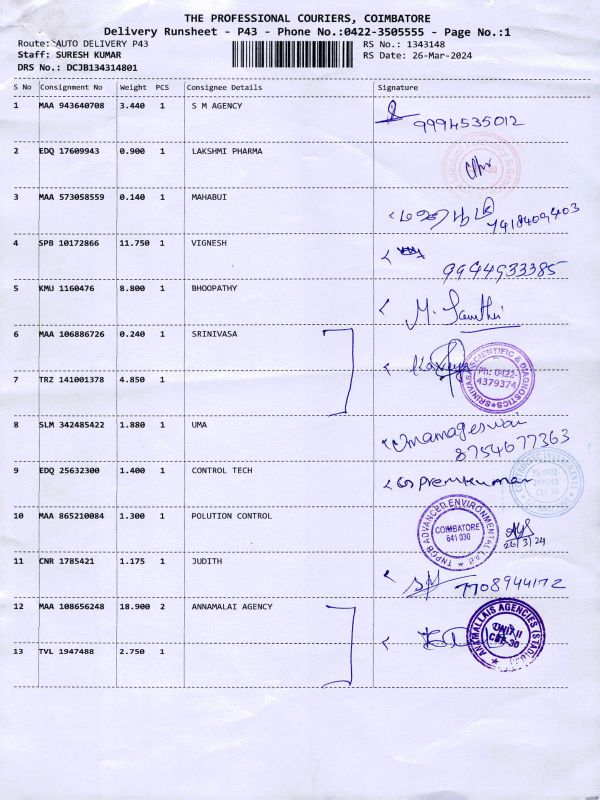 THE PROFESSIONAL COURIERS, COIMBATORE
Delivery Runsheet - P43 - Phone No.:0422-3505555 - Page No.:1
Route: AUTO DELIVERY P43 RS No.: 1343148
Staff: SURESH KUMAR RS Date: 26-Mar-2024
DRS No.: DCJB134314801
S No Consignment No Weight PCS Consignee Details Signature
1 MAA 943640708 3.440 1 S M AGENCY
9994535012
2 EDQ 17609943 0.900 1 LAKSHMI PHARMA
3 MAA 573058559 0.140 1 MAHABUI
4 SPB 10172866 11.750 1 VIGNESH
9944933385
5 KMU 1160476 8.800 1 BHOOPATHY
M. Santhi
6 MAA 106886726 0.240 1 SRINIVASA
SRINIVASA SCIENTIFIC & DIAGNOSTICS
Ph: 0422-
4379374
7 TRZ 141001378 4.850 1
8 SLM 342485422 1.880 1 UMA
Umamageswari
8754677363
9 EDQ 25632300 1.400 1 CONTROL TECH
Premkumar
10 MAA 865210084 1.300 1 POLUTION CONTROL
TNPCB ADVANCED ENVIRONMENTAL LAB
COIMBATORE
641 030
26/3/24
11 CNR 1785421 1.175 1 JUDITH
7708944172
12 MAA 108656248 18.900 2 ANNAMALAI AGENCY
ANAMALLAIS AGENCIES
UNIT II
CBE-30
13 TVL 1947488 2.750 1